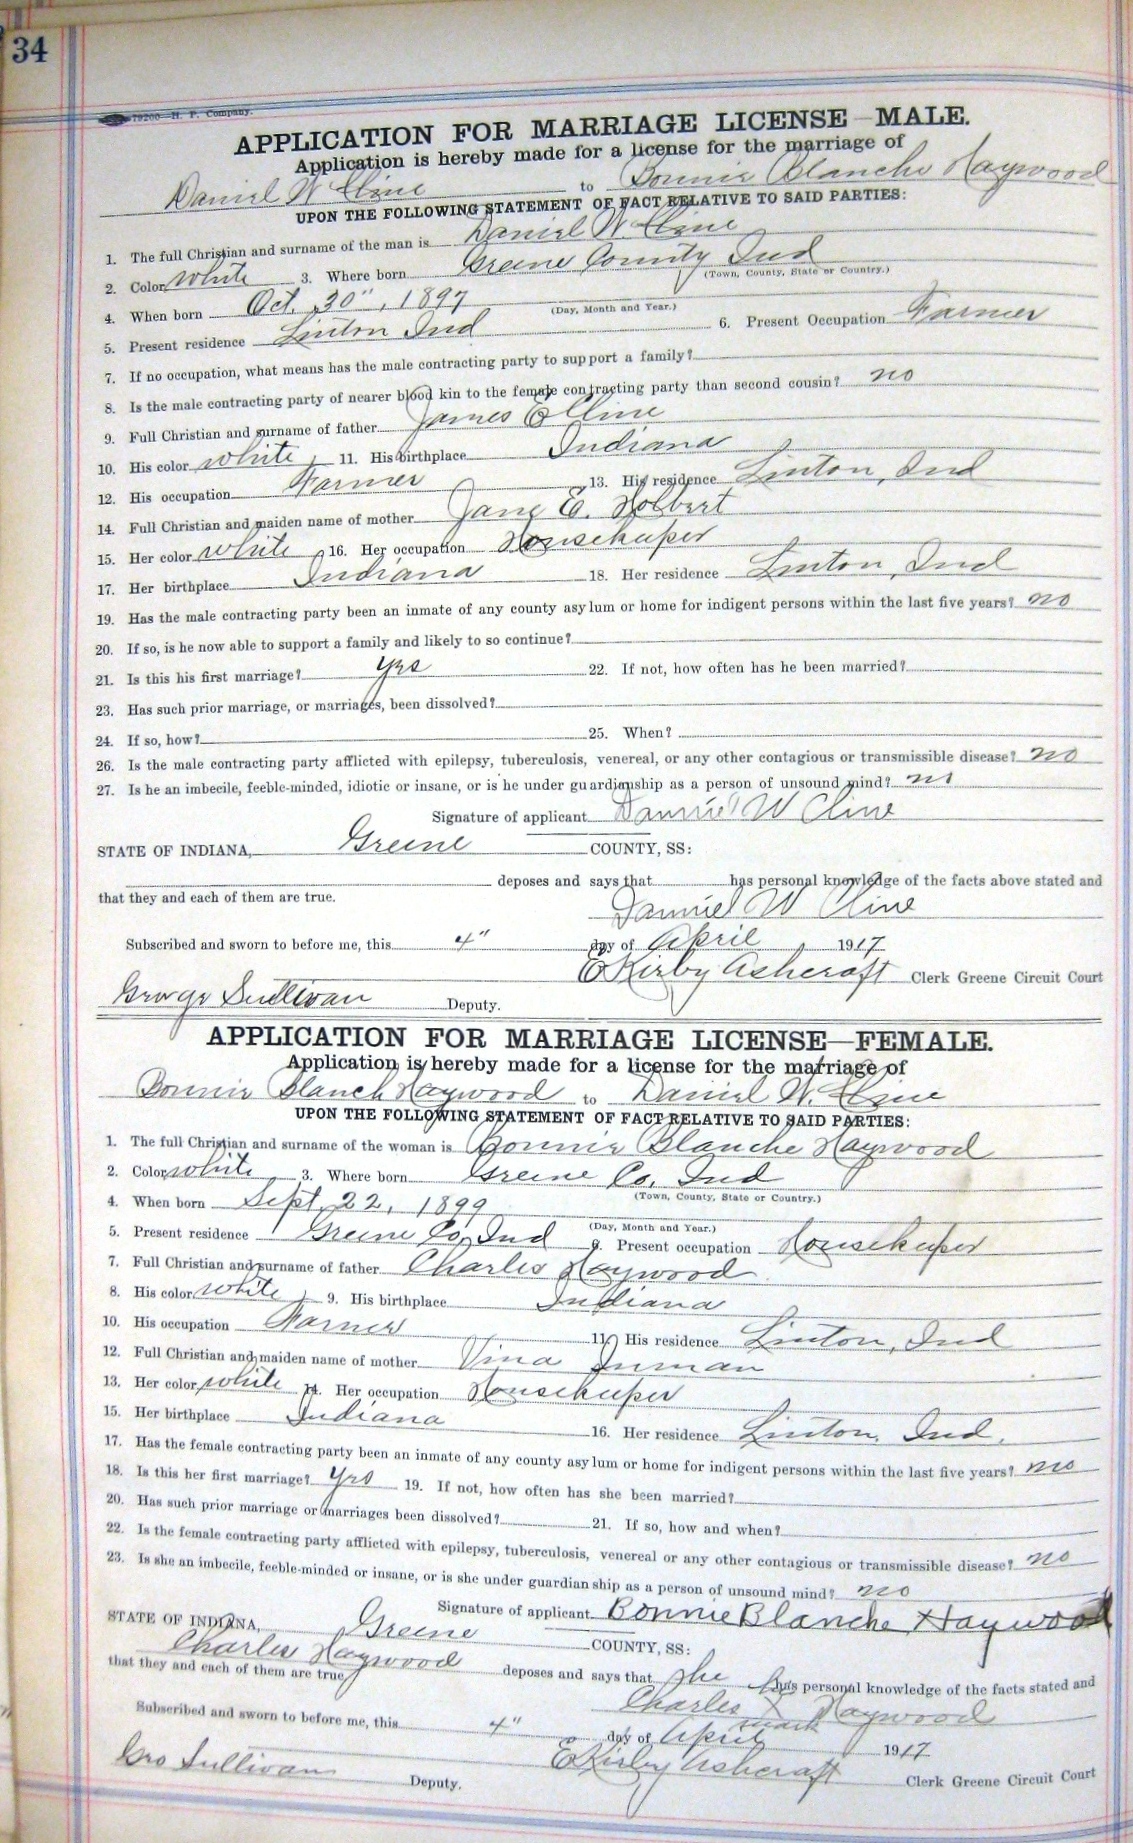 34
79200—H. P. Company.
APPLICATION FOR MARRIAGE LICENSE—MALE.
Application is hereby made for a license for the marriage of
Daniel W Cline to Bonnie Blanche Haywood
UPON THE FOLLOWING STATEMENT OF FACT RELATIVE TO SAID PARTIES:
1. The full Christian and surname of the man is Daniel W. Cline
2. Color white 3. Where born Greene County Ind
(Town, County, State or Country.)
4. When born Oct. 30", 1897
(Day, Month and Year.)
5. Present residence Linton Ind 6. Present Occupation Farmer
7. If no occupation, what means has the male contracting party to support a family?
8. Is the male contracting party of nearer blood kin to the female contracting party than second cousin? no
9. Full Christian and surname of father James E Cline
10. His color white 11. His birthplace Indiana
12. His occupation Farmer 13. His residence Linton, Ind
14. Full Christian and maiden name of mother Jane E. Holbert
15. Her color white 16. Her occupation Housekeeper
17. Her birthplace Indiana 18. Her residence Linton, Ind
19. Has the male contracting party been an inmate of any county asylum or home for indigent persons within the last five years? no
20. If so, is he now able to support a family and likely to so continue?
21. Is this his first marriage? yes 22. If not, how often has he been married?
23. Has such prior marriage, or marriages, been dissolved?
24. If so, how? 25. When?
26. Is the male contracting party afflicted with epilepsy, tuberculosis, venereal, or any other contagious or transmissible disease? no
27. Is he an imbecile, feeble-minded, idiotic or insane, or is he under guardianship as a person of unsound mind? no
Signature of applicant Danniel W Cline
STATE OF INDIANA, Greene COUNTY, SS:
deposes and says that has personal knowledge of the facts above stated and
that they and each of them are true.
Danniel W Cline
Subscribed and sworn to before me, this 4" day of April 1917
E Kirby Ashcraft Clerk Greene Circuit Court
George Sullivan Deputy.
APPLICATION FOR MARRIAGE LICENSE—FEMALE.
Application is hereby made for a license for the marriage of
Bonnie Blanch Haywood to Daniel W. Cline
UPON THE FOLLOWING STATEMENT OF FACT RELATIVE TO SAID PARTIES:
1. The full Christian and surname of the woman is Bonnie Blanche Haywood
2. Color white 3. Where born Greene Co, Ind
(Town, County, State or Country.)
4. When born Sept. 22, 1899
(Day, Month and Year.)
5. Present residence Greene Co, Ind 6. Present occupation Housekeeper
7. Full Christian and surname of father Charles Haywood
8. His color white 9. His birthplace Indiana
10. His occupation Farmer 11. His residence Linton, Ind
12. Full Christian and maiden name of mother Vina Inman
13. Her color white 14. Her occupation Housekeeper
15. Her birthplace Indiana 16. Her residence Linton, Ind.
17. Has the female contracting party been an inmate of any county asylum or home for indigent persons within the last five years? no
18. Is this her first marriage? yes 19. If not, how often has she been married?
20. Has such prior marriage or marriages been dissolved? 21. If so, how and when?
22. Is the female contracting party afflicted with epilepsy, tuberculosis, venereal or any other contagious or transmissible disease? no
23. Is she an imbecile, feeble-minded or insane, or is she under guardianship as a person of unsound mind? no
Signature of applicant Bonnie Blanche Haywood
STATE OF INDIANA, Greene COUNTY, SS:
Charles Haywood deposes and says that she has personal knowledge of the facts stated and
that they and each of them are true
Charles X Haywood
mark
Subscribed and sworn to before me, this 4" day of April 1917
E Kirby Ashcraft Clerk Greene Circuit Court
Geo Sullivan Deputy.